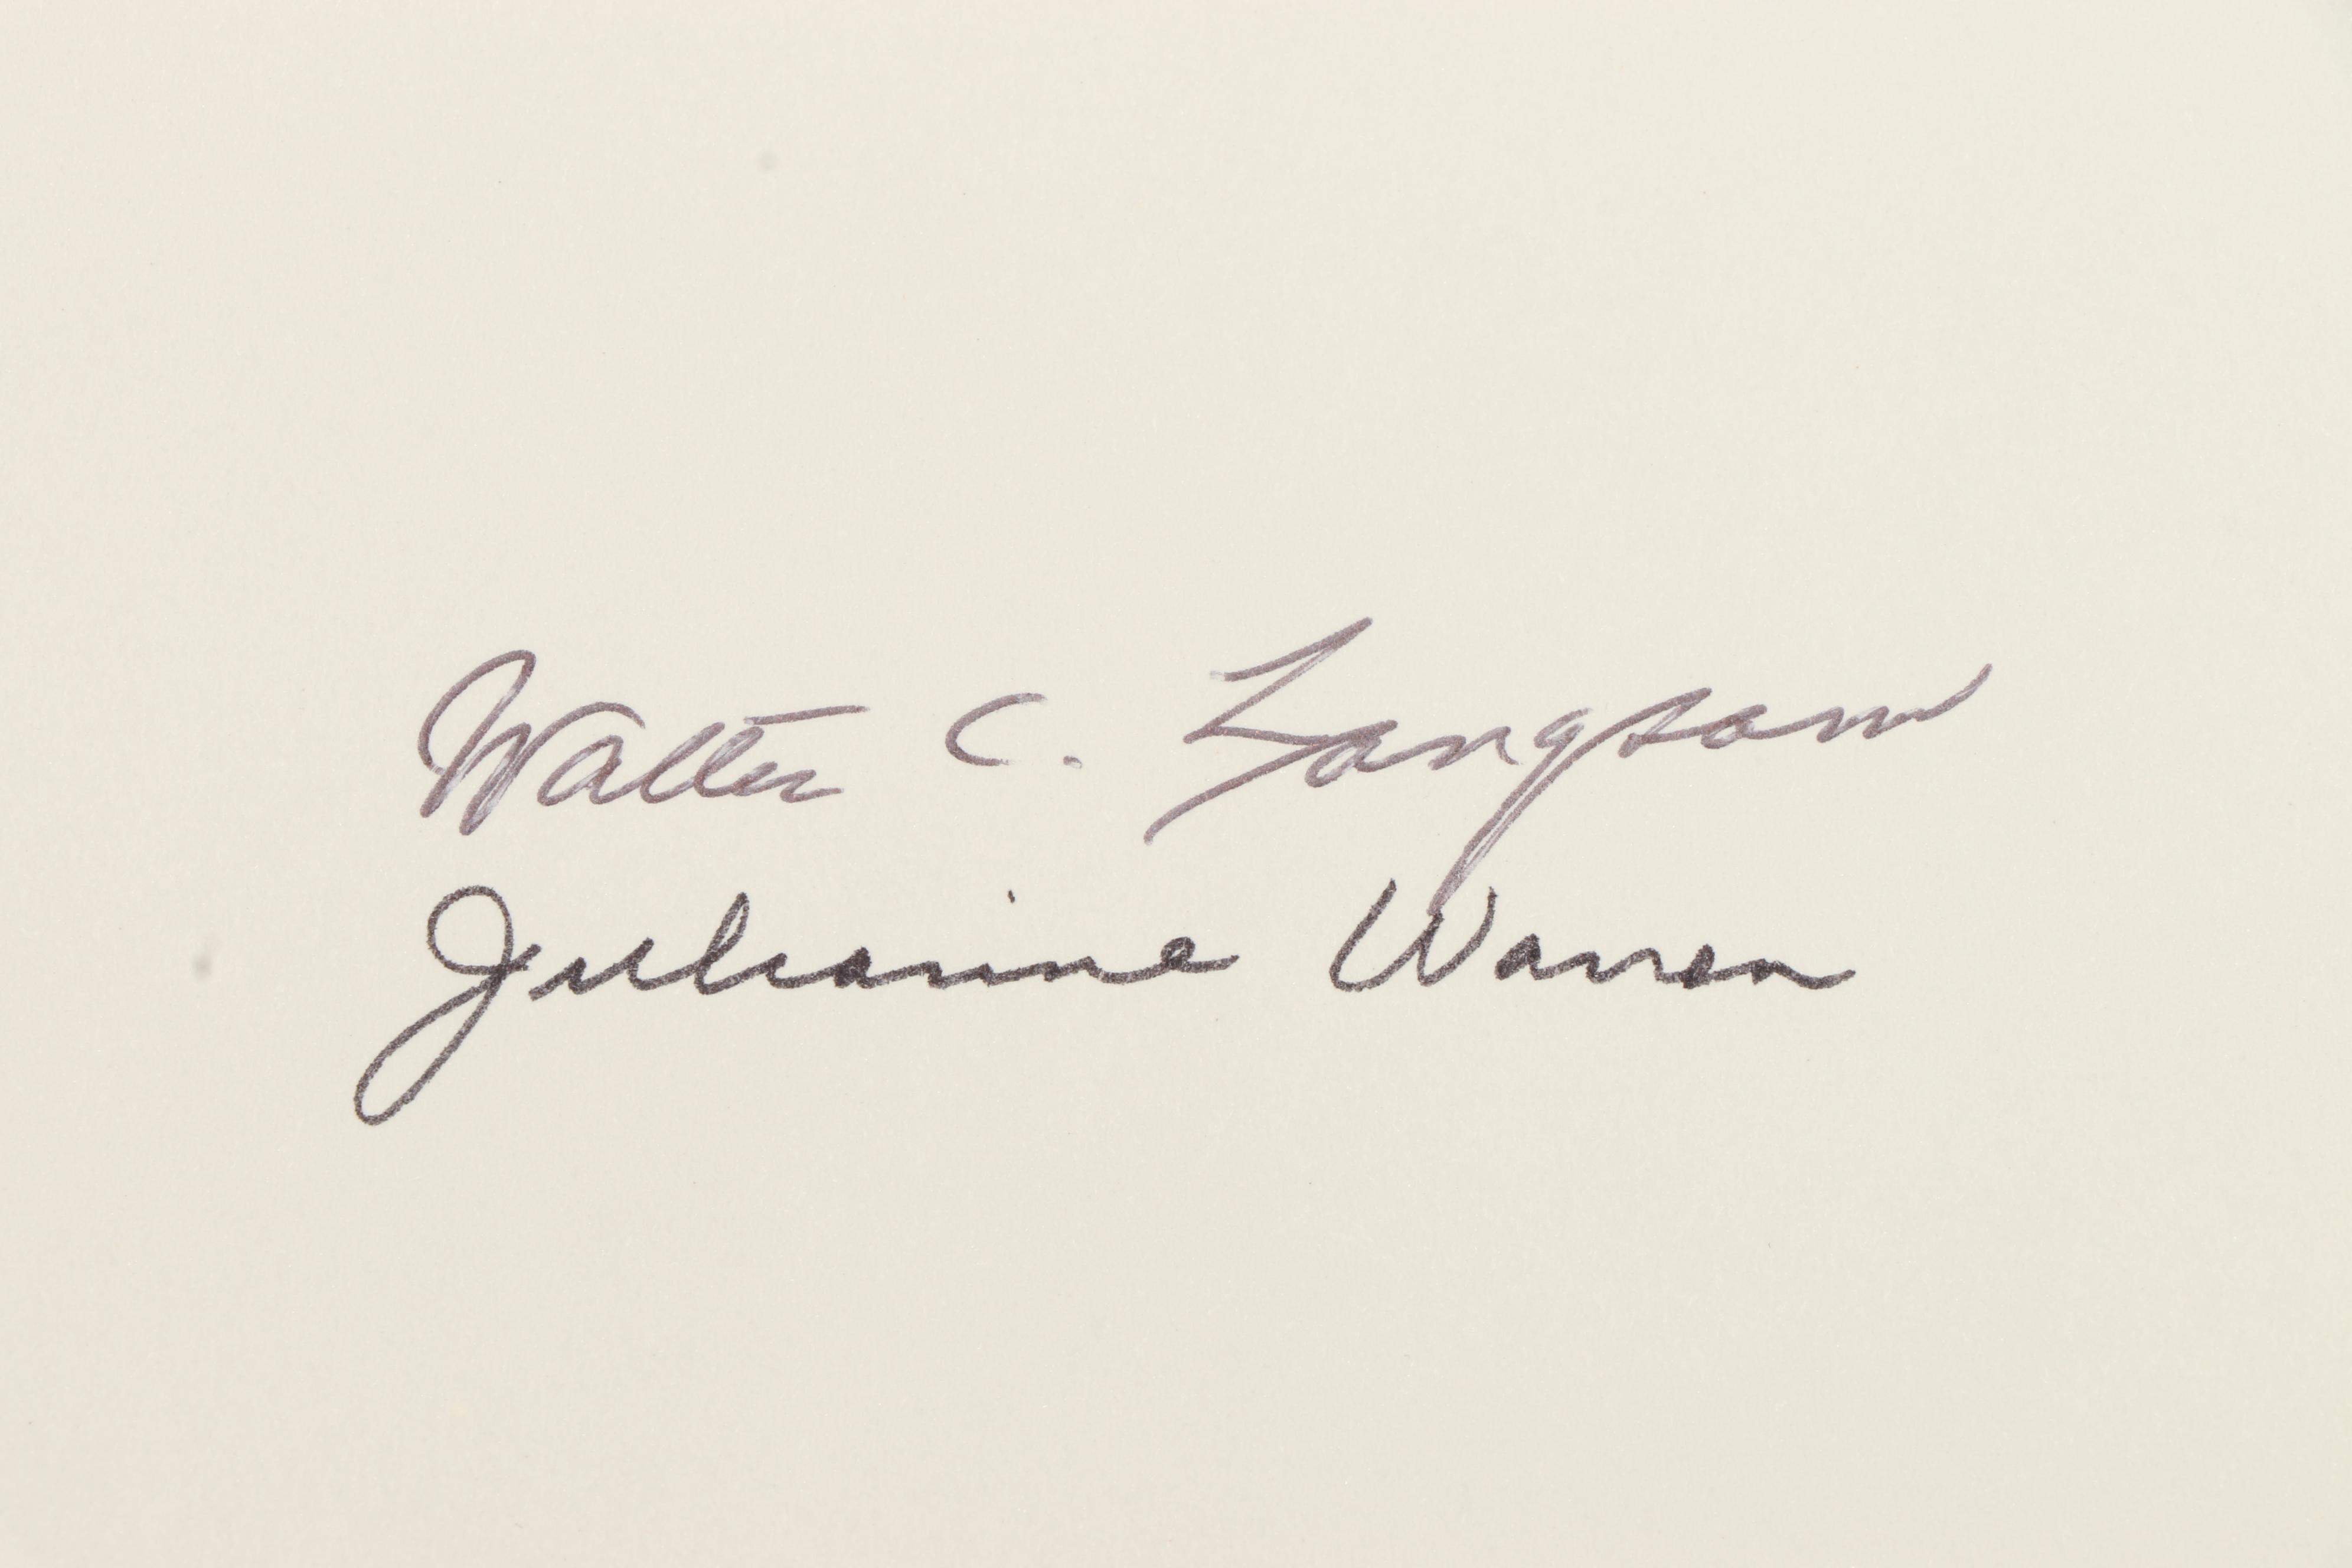 Walter C. Langsam
Julianne Warren